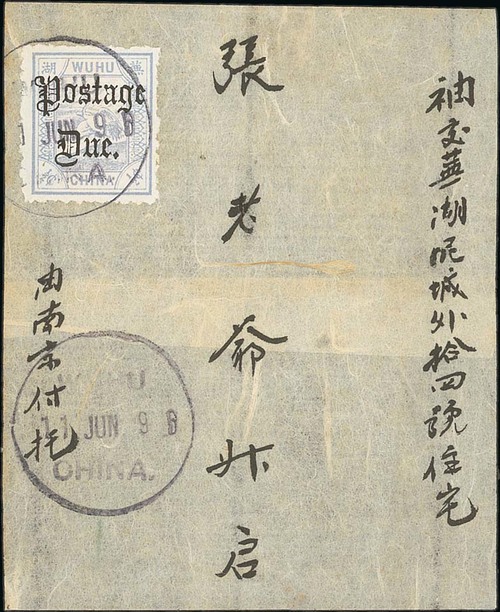 袖交蕪湖城外拾四號住宅
張老爺升启
由南京付托
湖 WUHU 蕪
Postage
Due.
CHINA
JUN 96
A
WUHU
11 JUN 96
CHINA.